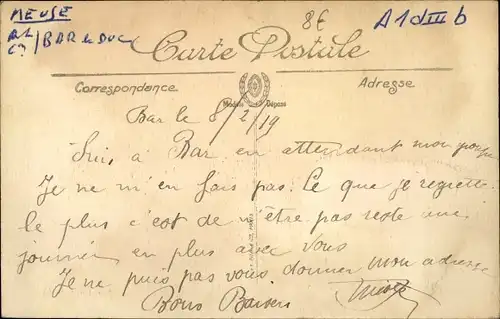 MEUSE
BAR le DUC
8€
A1dIII b
Carte Postale
Correspondance
Adresse
Modèle Déposé
Bar le 8/2/19
Suis à Bar en attendant mon
Je ne m'en fais pas. Ce que je regrette
le plus c'est de n'être pas resté une
journée en plus avec vous
Je ne puis pas vous donner mon adresse
Bons Baisers